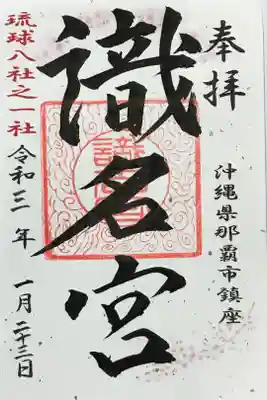 奉拝
沖縄県那覇市鎮座
識名宮
琉球八社之一社
令和三年 一月二十三日